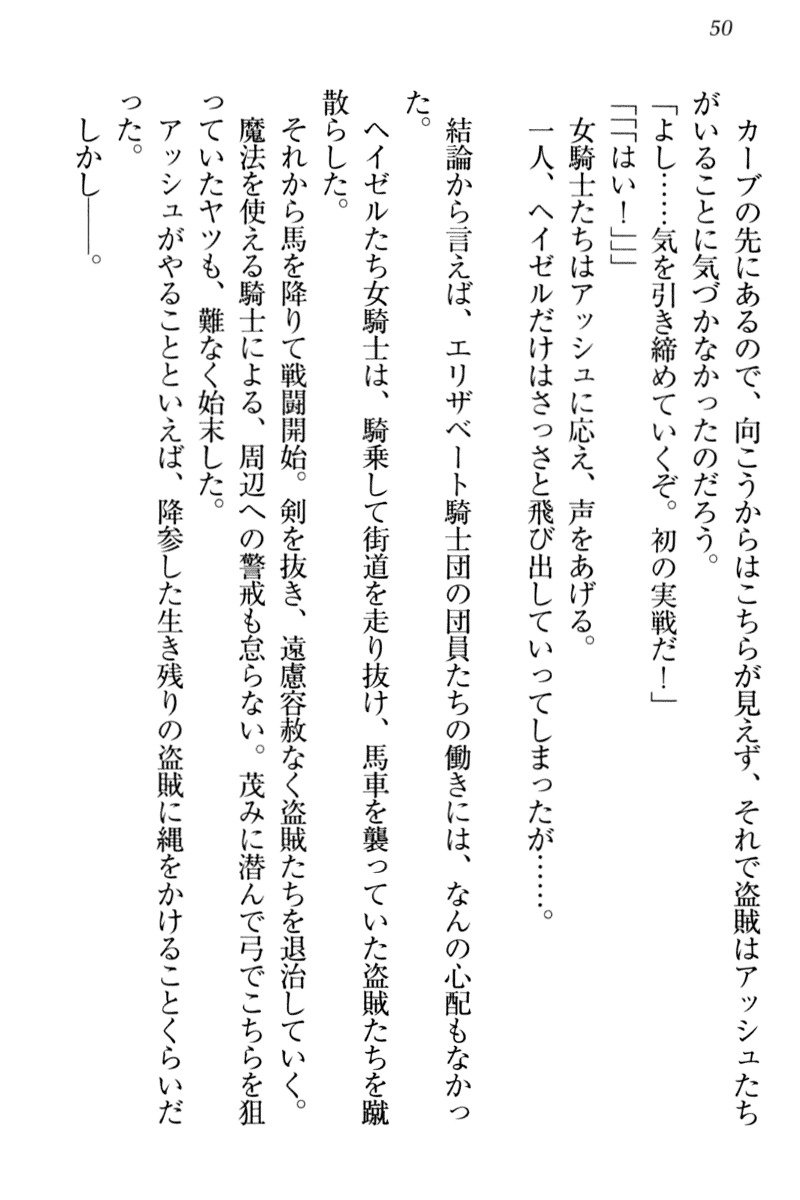 50
カーブの先にあるので、向こうからはこちらが見えず、それで盗賊はアッシュたち
がいることに気づかなかったのだろう。
「よし……気を引き締めていくぞ。初の実戦だ！」
「「「はい！」」」
女騎士たちはアッシュに応え、声をあげる。
一人、ヘイゼルだけはさっさと飛び出していってしまったが……。
結論から言えば、エリザベート騎士団の団員たちの働きには、なんの心配もなかっ
た。
ヘイゼルたち女騎士は、騎乗して街道を走り抜け、馬車を襲っていた盗賊たちを蹴
散らした。
それから馬を降りて戦闘開始。剣を抜き、遠慮容赦なく盗賊たちを退治していく。
魔法を使える騎士による、周辺への警戒も怠らない。茂みに潜んで弓でこちらを狙
っていたヤツも、難なく始末した。
アッシュがやることといえば、降参した生き残りの盗賊に縄をかけることくらいだ
った。
しかし――。